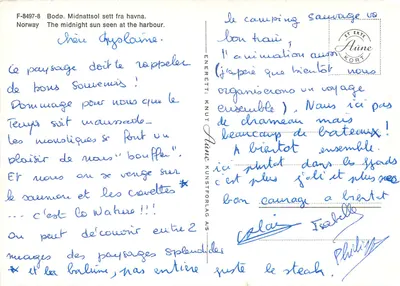 F-8497-8 Bodø. Midnattsol sett fra havna.
Norway The midnight sun seen at the harbour.
Chère Ghylaine.
Ce paysage doit te rappeler
de bons souvenirs!
Dommage pour nous que le
Temps soit maussade.
Les moustiques se font un
plaisir de nous "bouffer"
Et nous on se venge sur
le saumon et les crevettes *
... c'est la Nature!!!
On peut découvrir entre 2
nuages des paysages splendides
* et la baleine, pas entière juste le steak.
ENERETT: KNUT Aune KUNSTFORLAG AS
EKTE
Aune
KORT
le camping sauvage va
bon train,
l'animation aussi
(j'espère que bientôt nous
organiserons un voyage
ensemble). Nous ici pas
de chameau mais
beaucoup de bateaux!
A bientôt ensemble.
ici plutôt dans les fjords
c'est plus joli et plus
bon courage a bientôt
Isabelle
Philippe